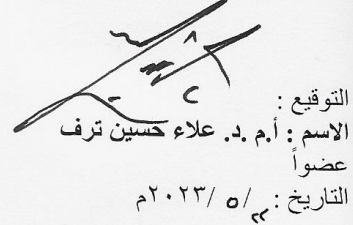 التوقيع :
الاسم : أ.م .د. علاء حسين ترف
عضواً
التاريخ : ٢٢/ ٥ /٢٠٢٣م